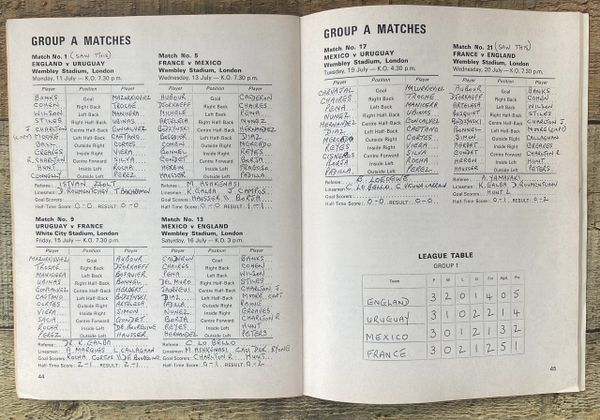 GROUP A MATCHES
Match No. 1 (SAW THIS)
ENGLAND v URUGUAY
Wembley Stadium, London
Monday, 11 July — K.O. 7.30 p.m.
Player Position Player
BANKS Goal MAZURKIEWIEZ
COHEN Right Back TROCHE
WILSON Left Back MANICERA
STILES Right Half-Back UBINAS
J CHARLTON Centre Half-Back GONCALVEZ
MOORE Left Half-Back CAETANO
BALL Outside Right CORTES
GREAVES Inside Right VIERA
R. CHARLTON Centre Forward SILVA
HUNT Inside Left ROCHA
CONNELLY Outside Left PEREZ
Referee: ISTVAN ZSOLT
Linesmen:
Goal Scorers:
Half-Time Score: 0-0 RESULT: 0-0
Match No. 5
FRANCE v MEXICO
Wembley Stadium, London
Wednesday, 13 July — K.O. 7.30 p.m.
Player Position Player
AUBOUR Goal CALDERON
DJORKAEFF Right Back CHAIRES
Left Back PENA
ARTELESA Right Half-Back NUNEZ
BUDZYNSKI Centre Half-Back HERNANDEZ
BOSQUIER Left Half-Back DIAZ
COMBIN Outside Right MERCADO
BONNEL Inside Right REYES
GONDET Centre Forward BORJA
HERBIN Inside Left FRAGOSO
HAUSSER Outside Left PADILLA
Referee: M ASHKENASI
Linesmen: K. GALBA J CAMPOS
Goal Scorers: HAUSSER BORJA
Half-Time Score: 0-0 RESULT: 1-1
Match No. 9
URUGUAY v FRANCE
White City Stadium, London
Friday, 15 July — K.O. 7.30 p.m.
Player Position Player
MAZURKIEVIEZ Goal AUBOUR
TROCHE Right Back DJORKAEFF
MANICERA Left Back BOSQUIER
UBINAS Right Half-Back BONNEL
GONCALVEZ Centre Half-Back
CAETANO Left Half-Back BUDZYNSKI
CORTES Outside Right ARTELESA
VIERA Inside Right SIMON
SACIA Centre Forward GONDET
ROCHA Inside Left DE BOURGOING
PEREZ Outside Left HAUSSER
Referee: DR K. GALBA
Linesmen: A MARQUES L CALLAGHAN
Goal Scorers: ROCHA CORTES DE BOURGOING
Half-Time Score: 2-1 RESULT: 2-1
Match No. 13
MEXICO v ENGLAND
Wembley Stadium, London
Saturday, 16 July — K.O. 3 p.m.
Player Position Player
CALDERON Goal BANKS
CHAIRES Right Back COHEN
PENA Left Back WILSON
DEL MURO Right Half-Back STILES
JAUREGUI Centre Half-Back CHARLTON J
DIAZ Left Half-Back MOORE CAPT
PADILLA Outside Right PAINE
NUNEZ Inside Right GREAVES
BORJA Centre Forward CHARLTON R
REYES Inside Left HUNT
HERNANDEZ Outside Left PETERS
Referee: C LO BELLO
Linesmen: M. ASHKENASI
Goal Scorers: CHARLTON R HUNT
Half-Time Score: 0-1 RESULT: 0-2
44
GROUP A MATCHES
Match No. 17
MEXICO v URUGUAY
Wembley Stadium, London
Tuesday, 19 July — K.O. 4.30 p.m.
Player Position Player
CARVAJAL Goal MAZURKIEVIEZ
CHAIRES Right Back TROCHE
PENA Left Back MANICERA
NUNEZ Right Half-Back UBINAS
HERNANDEZ Centre Half-Back GONCALVEZ
DIAZ Left Half-Back CAETANO
MERCADO Outside Right CORTES
REYES Inside Right VIERA
CISNEROS Centre Forward SILVA
BORJA Inside Left ROCHA
PADILLA Outside Left PEREZ
Referee: B. LOEOEWE
Linesmen: C LO BELLO
Goal Scorers:
Half-Time Score: 0-0 RESULT: 0-0
Match No. 21 (SAW THIS)
FRANCE v ENGLAND
Wembley Stadium, London
Wednesday, 20 July — K.O. 7.30 p.m.
Player Position Player
AUBOUR Goal BANKS
DJORKAEFF Right Back COHEN
ARTELESA Left Back WILSON
BOSQUIER Right Half-Back STILES
Centre Half-Back CHARLTON J
BONNEL Left Half-Back MOORE (CAPT)
SIMON Outside Right CALLAGHAN
HERBET Inside Right GREAVES
GONDET Centre Forward CHARLTON R
HERBIN Inside Left HUNT
HAUSSER Outside Left PETERS
Referee: A. YAMASAKI
Linesmen: K GALBA D. ROUMENTCHEV
Goal Scorers: HUNT 2
Half-Time Score: 0-1 RESULT: 0-2
LEAGUE TABLE
GROUP 1
Team P W D L For Agst Pts
ENGLAND 3 2 0 1 4 0 5
URUGUAY 3 1 0 2 2 1 4
MEXICO 3 0 1 2 1 3 2
FRANCE 3 0 2 1 2 5 1
45